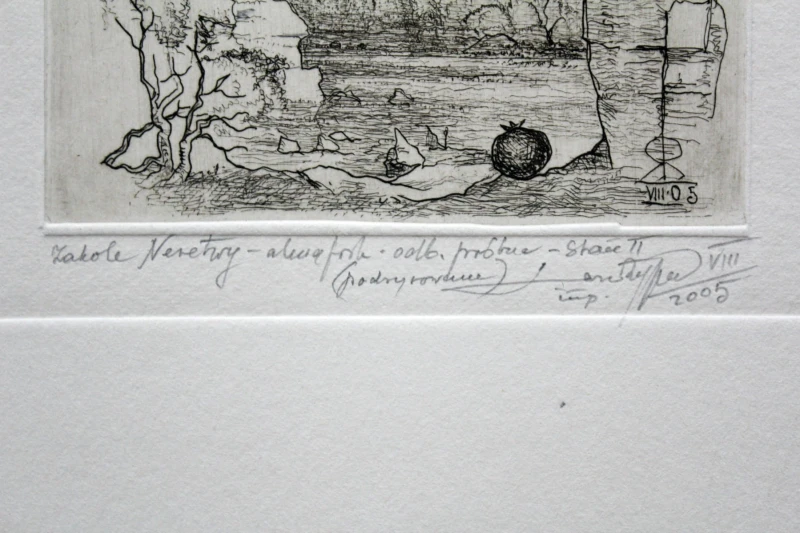 VIII·05
Zakole Neretwy – akwafort · odb. próbne – Stan II
(podrysowane) VIII
imp. 2005